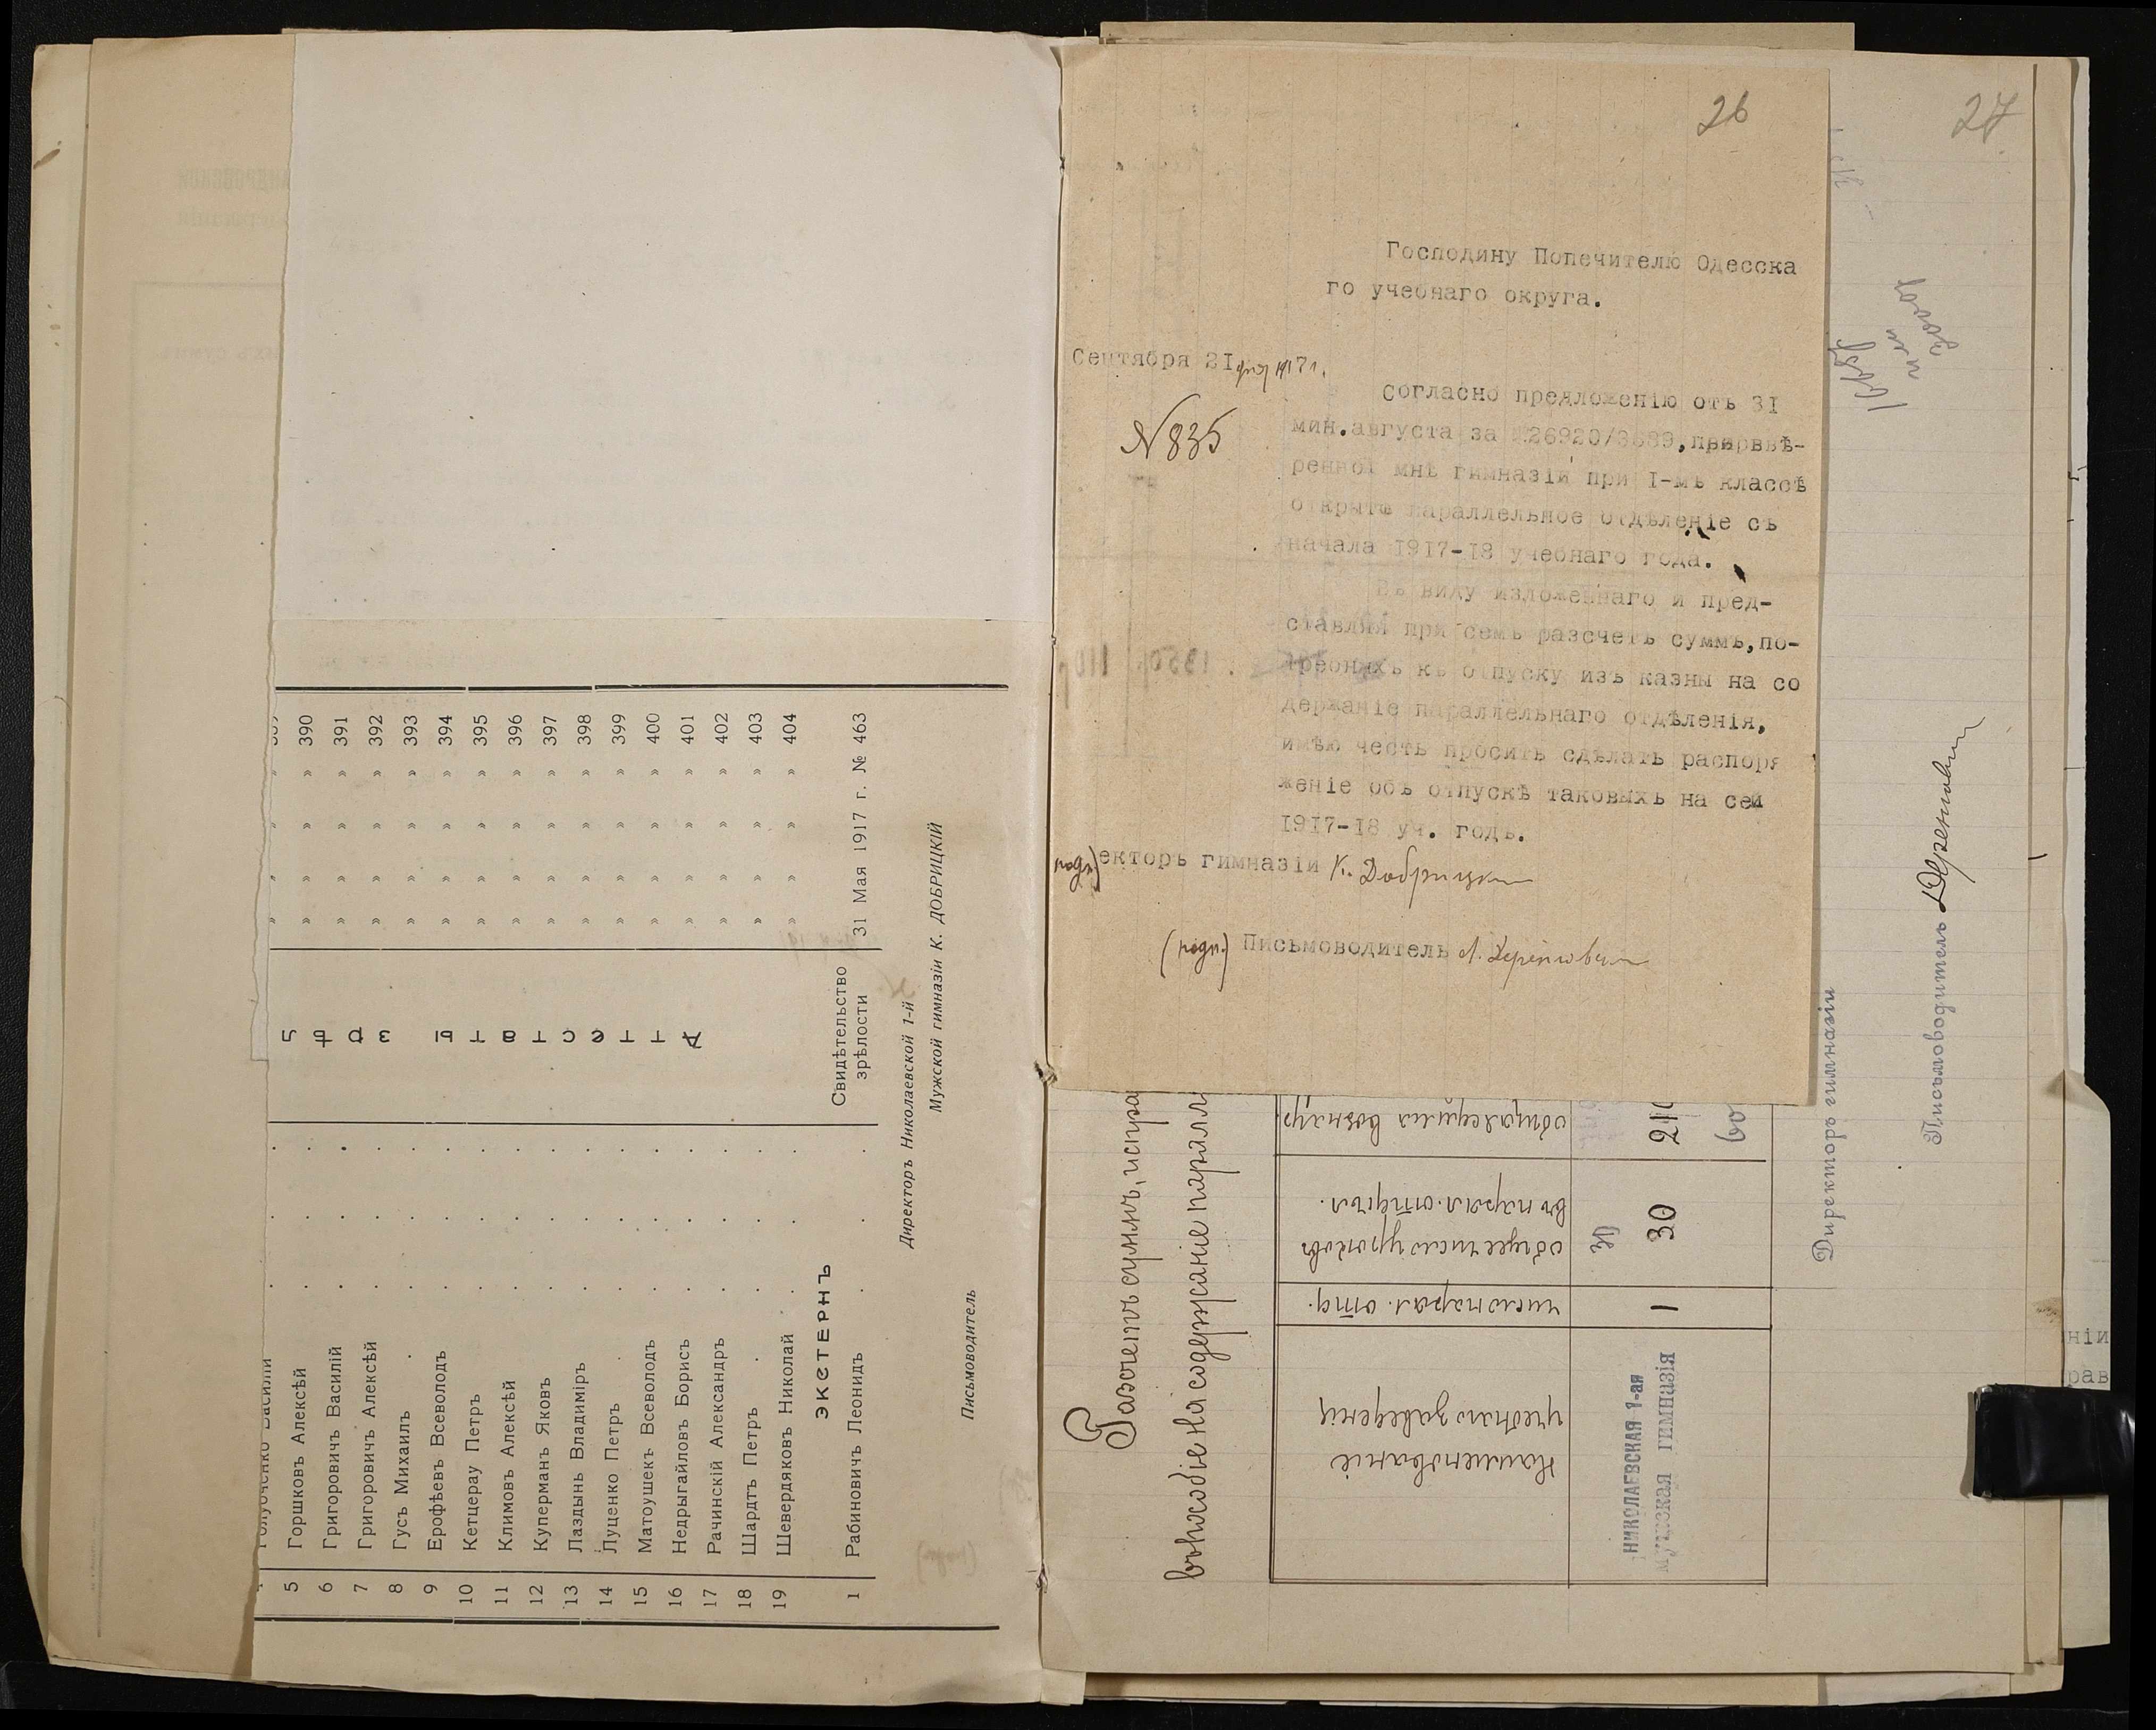 5 Горшковъ Алексѣй . . . » » » » » 390
6 Григоровичъ Василій . . . » » » » » 391
7 Григоровичъ Алексѣй . . . » » » » » 392
8 Гусъ Михаилъ . . . . » » » » » 393
9 Ерофѣевъ Всеволодъ . . . » » » » » 394
10 Кетцерау Петръ . . . » » » » » 395
11 Климовъ Алексѣй . . . » » » » » 396
12 Куперманъ Яковъ . . . » » » » » 397
13 Лаздынь Владиміръ . . . » » » » » 398
14 Луценко Петръ . . . . » » » » » 399
15 Матоушекъ Всеволодъ . . . » » » » » 400
16 Недрыгайловъ Борисъ . . . » » » » » 401
17 Рачинскій Александръ . . . » » » » » 402
18 Шардтъ Петръ . . . . » » » » » 403
19 Шевердяковъ Николай . . . » » » » » 404
Аттестаты зрѣл
ЭКСТЕРНЪ
1 Рабиновичъ Леонидъ . . . Свидѣтельство зрѣлости 31 Мая 1917 г. № 463
Директоръ Николаевской 1-й
Мужской гимназіи К. ДОБРИЦКІЙ
Письмоводитель
26
Господину Попечителю Одесска
го учебнаго округа.
Сентября 21 дня 1917 г.
№ 835
Согласно предложенію отъ 31
мин.августа за
ренной мнѣ гимназіи при I-мъ классѣ
открыто параллельное отдѣленіе съ
начала 1917-18 учебнаго года.
Въ виду изложеннаго и пред-
ставляя при семъ разсчетъ суммъ,по-
требныхъ къ отпуску изъ казны на со
держаніе параллельнаго отдѣленія,
имѣю честь просить сдѣлать распоря
женіе объ отпускѣ таковыхъ на сей
1917-18 уч. годъ.
подп.) екторъ гимназіи К. Добрицкій
(подп.) Письмоводитель
27
Разсчетъ суммъ, испра
въ пособіе на содержаніе паралл
Наименованіе
учебнаго заведенія
число парал. отд.
общее число уроковъ
въ парал. отдѣл.
НИКОЛАЕВСКАЯ 1-ая
мужская гимназія
1
30
30
210
60
Директоръ гимназіи
Письмоводитель
ніи
рав